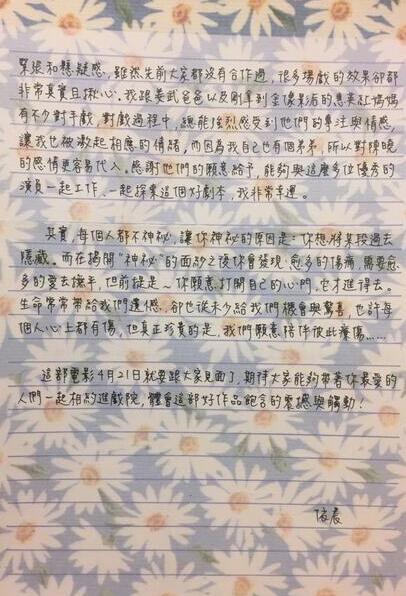 緊張和懸疑感，雖然先前大家都沒有合作過，很多場戲的效果卻都
非常真實且揪心。我跟姜武爸爸以及剛拿到金像影后的惠英紅媽媽
有不少對手戲，對戲過程中，總能強烈感受到他們的專注與情感，
讓我也被激起相應的情緒，而因為我自己也有個弟弟，所以對陳曉
的感情更容易代入。感謝他們的願意給予，能夠與這麼多位優秀的
演員一起工作，一起探索這個好劇本，我非常幸運。
其實，每個人都不神祕，讓你神祕的原因是：你想將某段過去
隱藏。而在揭開"神祕"的面紗之後你會發現，愈多的傷痛，需要愈
多的愛去撫平，但前提是～你願意打開自己的心門，它才進得去。
生命常常帶給我們遺憾，卻也從未少給我們機會與驚喜，也許每
個人心上都有傷，但真正珍貴的是，我們願意陪伴彼此療傷……
這部電影4月21日就要跟大家見面了，期待大家能夠帶著你最愛的
人們一起相約進戲院，體會這部好作品飽含的震撼與觸動！
依晨